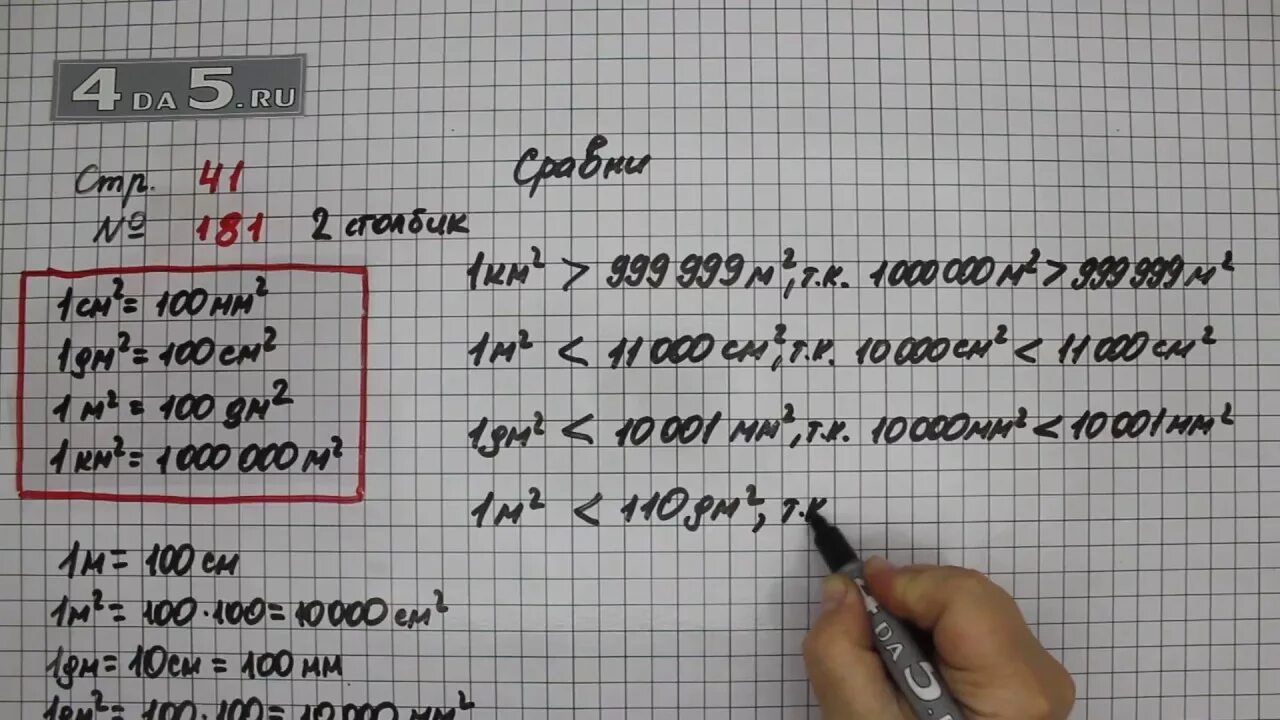 4DA5.RU
Стр. 41
№ 181 2 столбик
1см² = 100мм²
1дм² = 100см²
1м² = 100дм²
1км² = 1000 000м²
1м = 100см
1м² = 100·100 = 10000см²
1дм = 10см = 100мм
1дм² = 100·100 = 10000мм²
Сравни
1км² > 999 999м², т.к. 1000 000м² > 999 999м²
1м² < 11 000см², т.к. 10 000см² < 11 000см²
1дм² < 10 001 мм², т.к. 10 000мм² < 10 001мм²
1м² < 110дм², т.к
4DA5